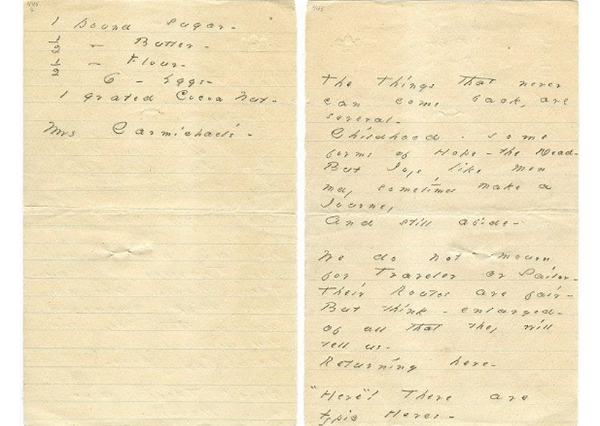 1 pound Sugar -
½ - Butter -
½ - Flour -
6 - Eggs -
1 grated Cocoa Nut -
Mrs Carmichael's -
The Things that never
can come back, are
several -
Childhood - some
forms of Hope - the Dead -
But Joys like Men
may sometimes make a
Journey
And still abide -
We do not mourn
for Traveler or Sailor -
Their Routes are fair -
But think - enlarged -
of all that they will
tell us -
Returning here -
"Here"! There are
typic Heres -